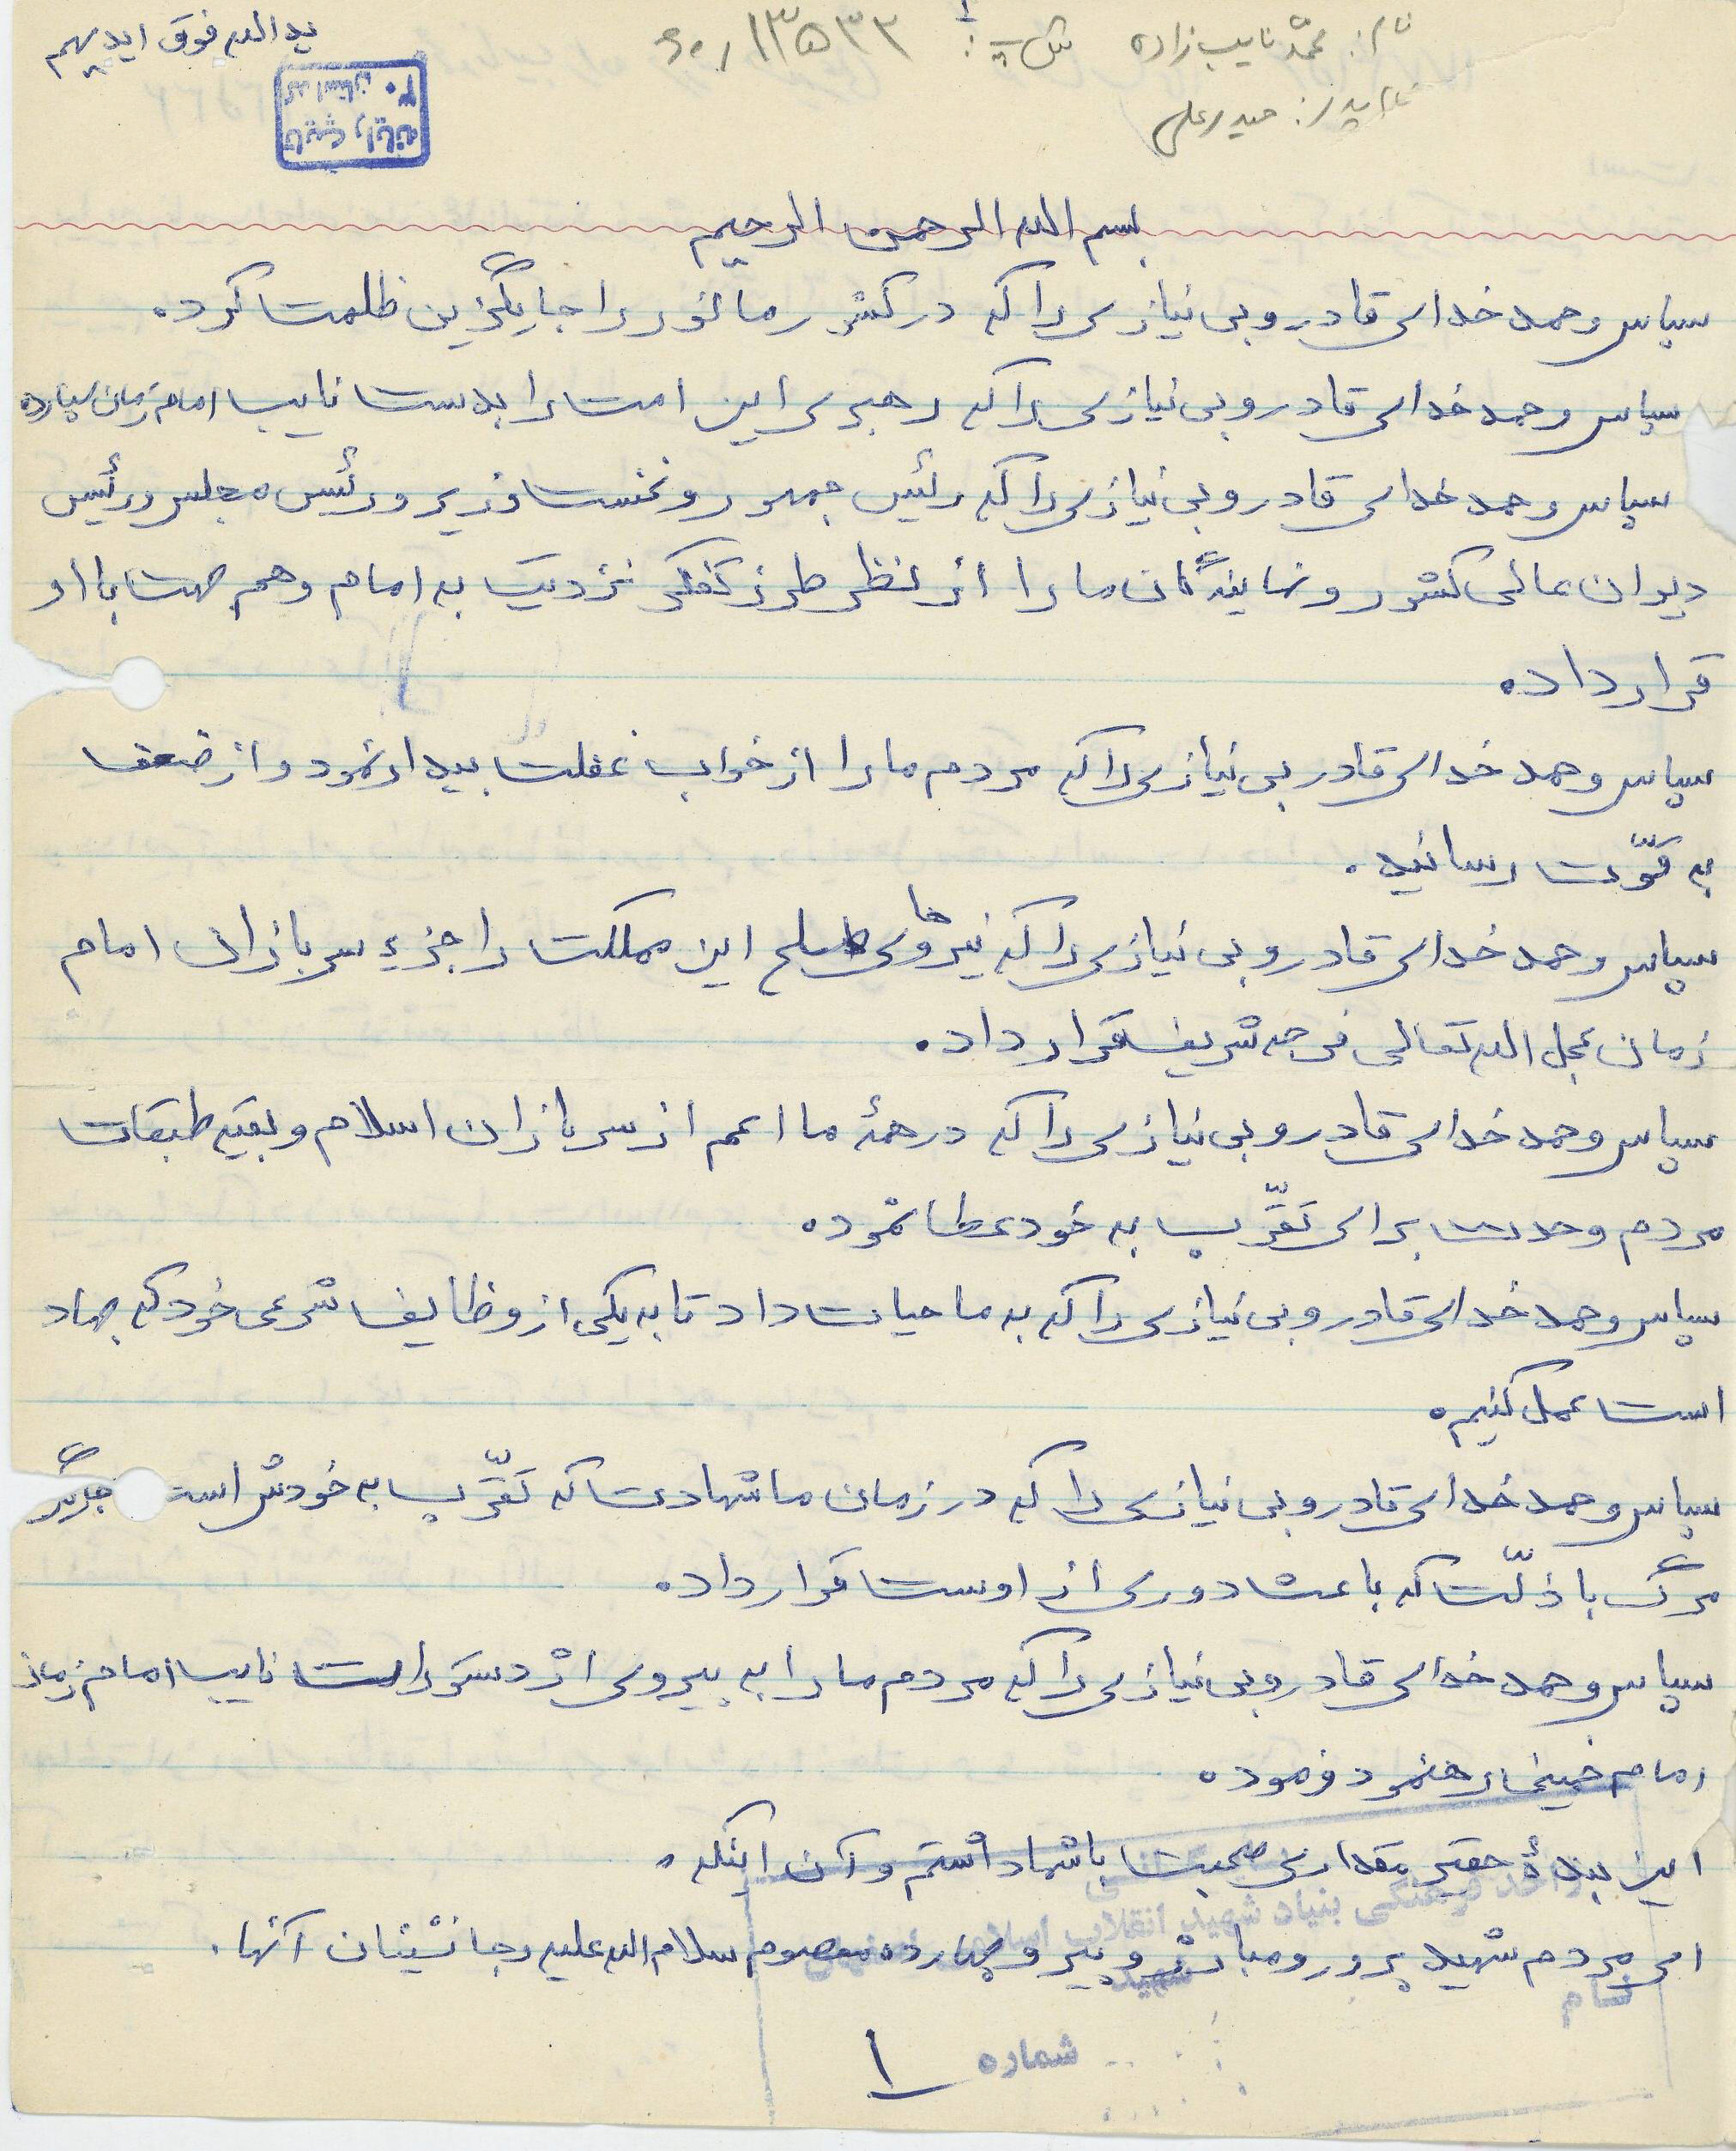 ید الله فوق ایدیهم
نام: محمّد نایب زاده
نام پدر: حیدرعلی
تایپ رایانه
کد استان ۳۰
بسم الله الرحمن الرحیم
سپاس و حمد خدای قادر و بی نیازی را که در کشور ما نور را جایگزین ظلمت کرد.
سپاس و حمد خدای قادر و بی نیازی را که رهبری این امت را بدست نایب امام زمان سپارده
سپاس و حمد خدای قادر و بی نیازی را که رئیس جمهور و نخست وزیر و رئیس مجلس و رئیس
دیوان عالی کشور و نمایندگان ما را از نظر طرز تفکر نزدیک به امام و هم جهت با او
قرار داد.
سپاس و حمد خدای قادر بی نیازی را که مردم ما را از خواب غفلت بیدار نمود و از ضعف
به قوّت رسانید.
سپاس و حمد خدای قادر و بی نیازی را که نیروهای مسلح این مملکت را جزء سربازان امام
زمان عجل الله تعالی فرجه شریف قرار داد.
سپاس و حمد خدای قادر و بی نیازی را که در همهٔ ما اعم از سربازان اسلام و بقیه طبقات
مردم وحدت برای تقّرب به خود عطا نموده
سپاس و حمد خدای قادر و بی نیازی را که به ما حیات داد تا به یکی از وظایف شرعی خود که جهاد
است عمل کنیم.
سپاس و حمد خدای قادر و بی نیازی را که در زمان ما شهادت که تقّرب به خودش است جایگزین
مرگ با ذلّت که باعث دوری از اوست قرار داد.
سپاس و حمد خدای قادر و بی نیازی را که مردم ما را به پیروی از دستورات نایب امام زمان
امام خمینی رهنمود فرموده
این بندهٔ حقیر مقداری صحبت با شما داشتم و آن اینکه.
ای مردم شهید پرور و مبارز و پیرو چهارده معصوم سلام الله علیه و جانشینان آنها.
واحد فرهنگی بنیاد شهید انقلاب اسلامی
شهید
شماره
۱